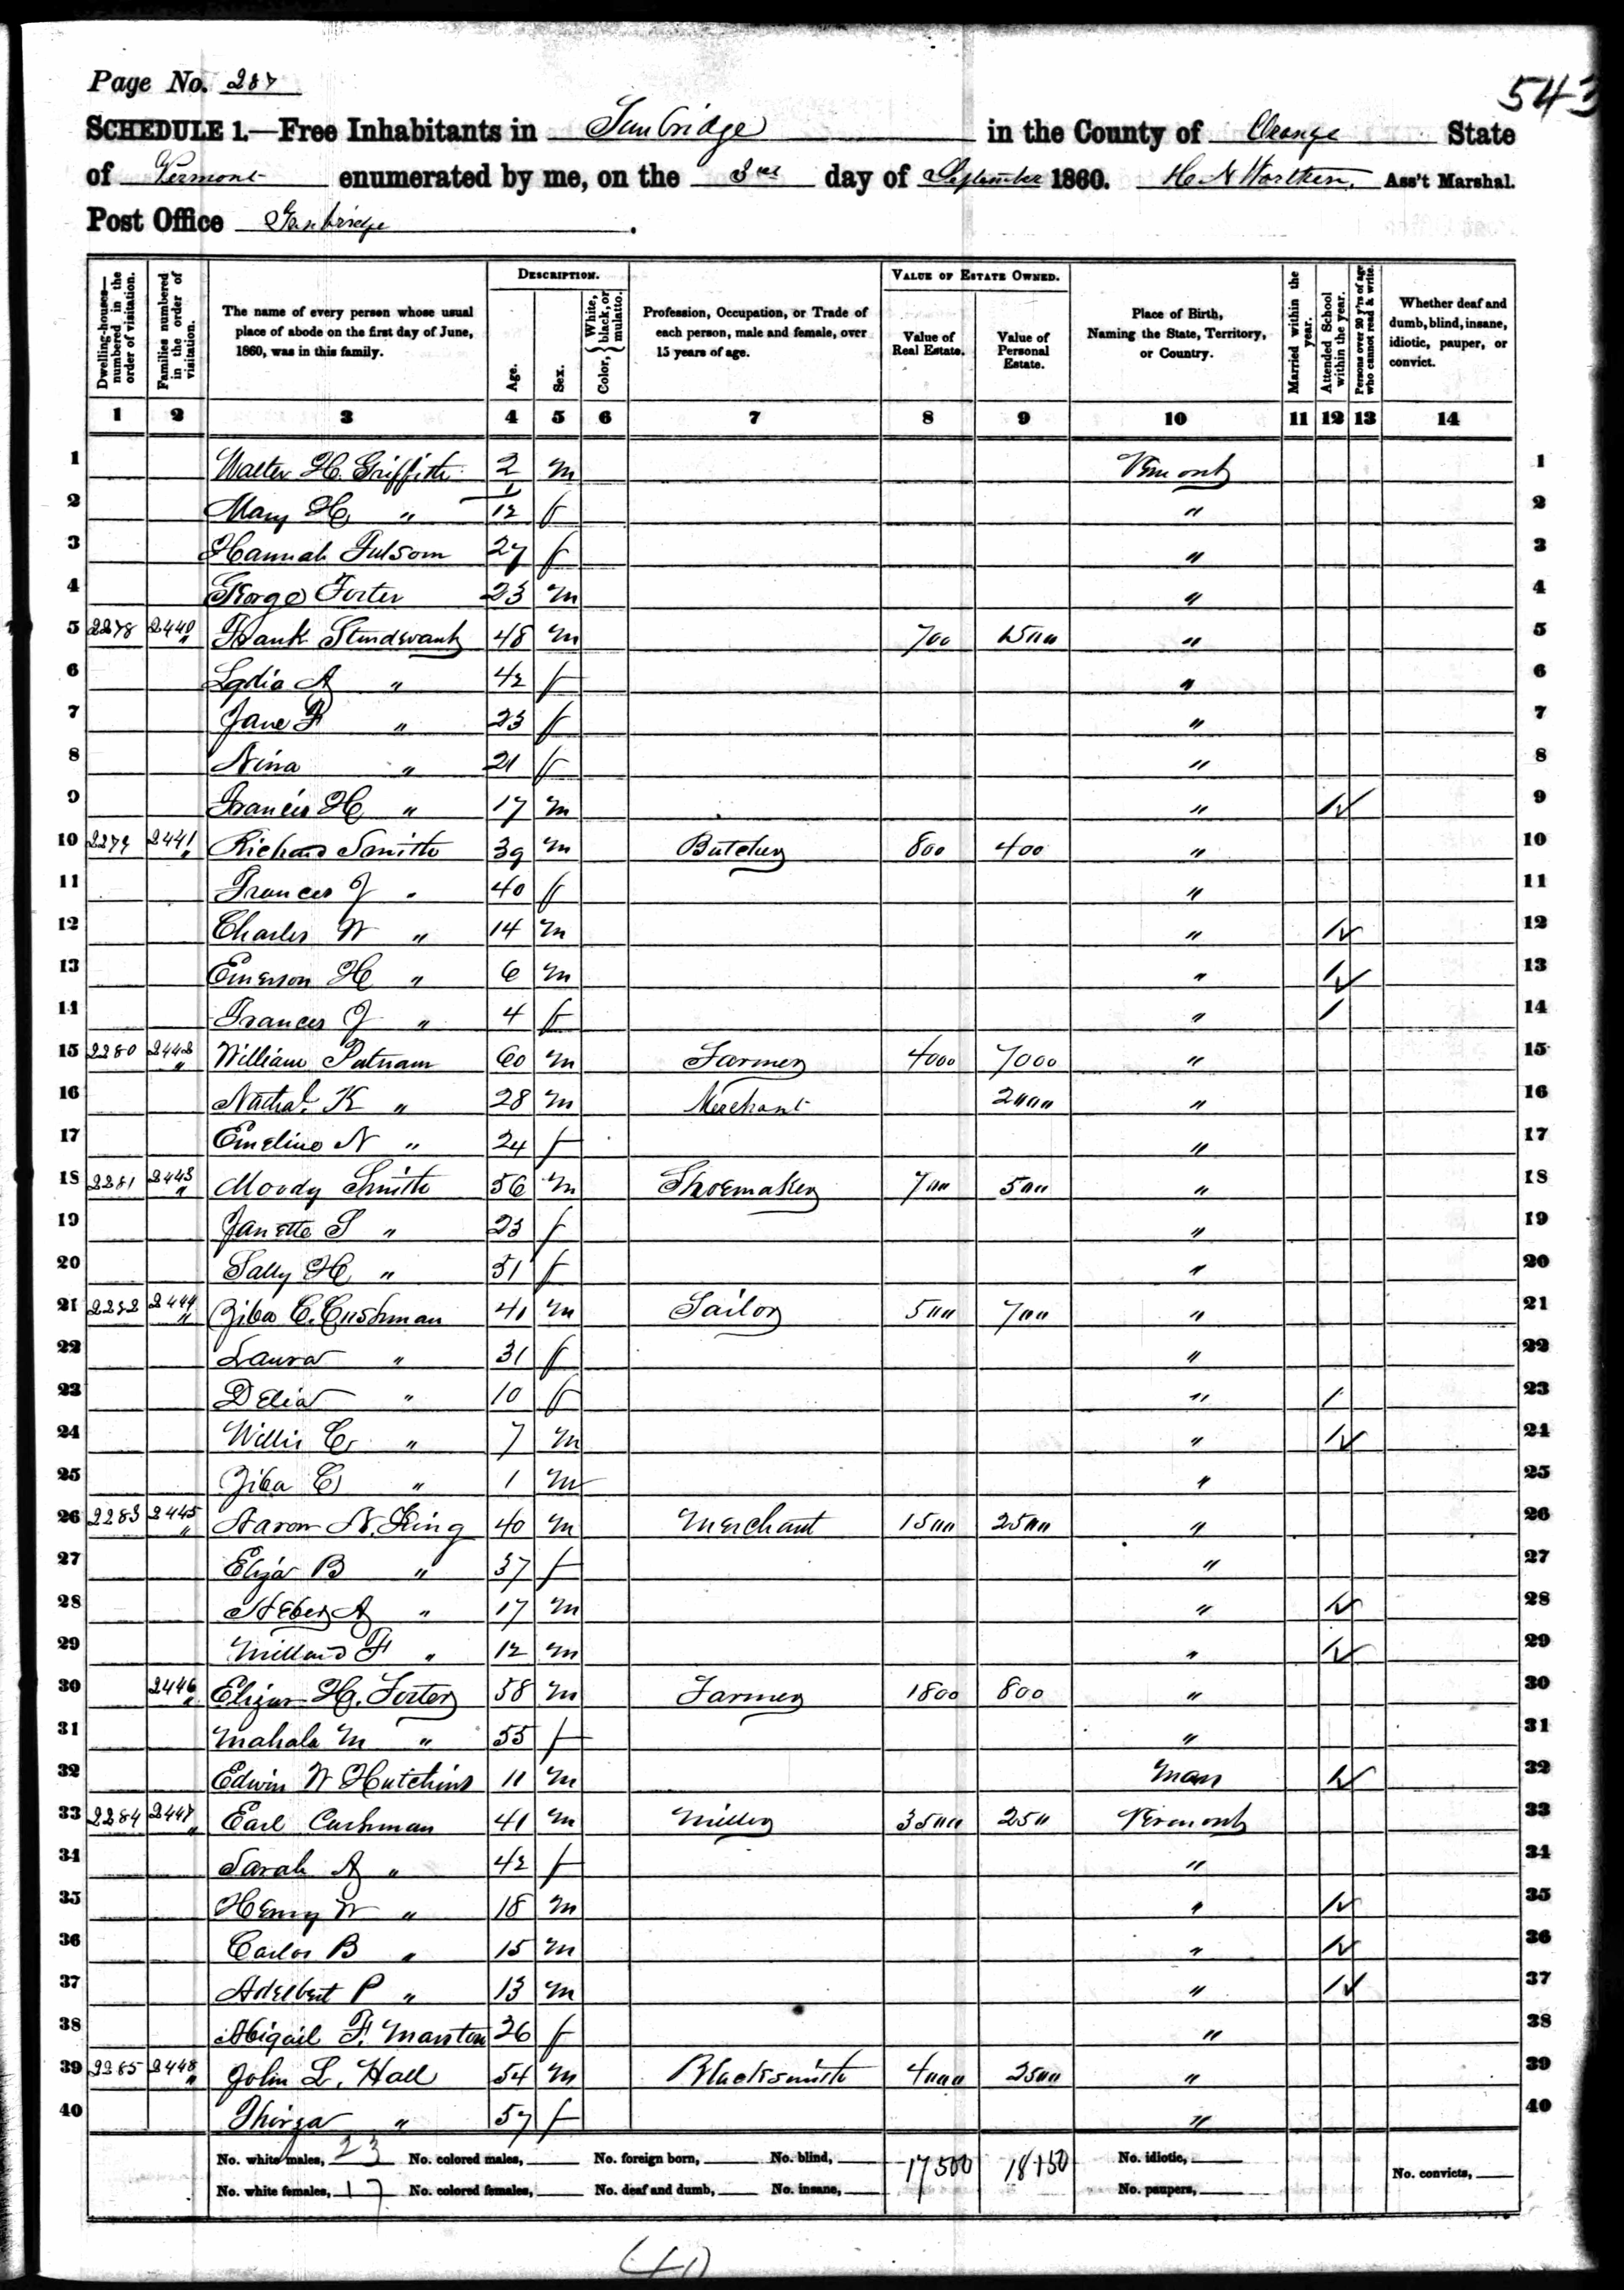 Page No. 287
543
SCHEDULE 1.—Free Inhabitants in Tunbridge in the County of Orange State
of Vermont enumerated by me, on the 3rd day of September 1860. H N Worthen, Ass't Marshal.
Post Office Tunbridge.
Dwelling-houses—numbered in the order of visitation. Families numbered in the order of visitation. The name of every person whose usual place of abode on the first day of June, 1860, was in this family. DESCRIPTION. Age. Sex. Color, {White, black, or mulatto. Profession, Occupation, or Trade of each person, male and female, over 15 years of age. VALUE OF ESTATE OWNED. Value of Real Estate. Value of Personal Estate. Place of Birth, Naming the State, Territory, or Country. Married within the year. Attended School within the year. Persons over 20 y'rs of age who cannot read & write. Whether deaf and dumb, blind, insane, idiotic, pauper, or convict.
1 2 3 4 5 6 7 8 9 10 11 12 13 14
1 Walter H. Griffith 2 m Vermont 1
2 Mary H " 1/12 f " 2
3 Hannah Fulsom 27 f " 3
4 George Foster 23 m " 4
5 2278 2440 " Frank Studevant 48 m 700 " 5
6 Lydia A " 42 f " 6
7 Jane F " 23 f " 7
8 Nina " 21 f " 8
9 Francis H " 17 m " / 9
10 2279 2441 " Richard Smith 39 m Butcher 800 400 " 10
11 Frances J " 40 f " 11
12 Charles W " 14 m " / 12
13 Emerson H " 6 m " / 13
14 Frances J " 4 f " / 14
15 2280 2442 " William Putnam 60 m Farmer 4000 7000 " 15
16 Nathal. K " 28 m Merchant 2000 " 16
17 Emeline N " 24 f " 17
18 2281 2443 " Moody Smith 56 m Shoemaker 700 500 " 18
19 Janette S " 23 f " 19
20 Sally H " 51 f " 20
21 2282 2444 " Ziba C. Cushman 41 m Tailor 500 700 " 21
22 Laura " 31 f " 22
23 Delia " 10 f " / 23
24 Willis C " 7 m " / 24
25 Ziba C " 1 m " 25
26 2283 2445 " Aaron N. King 40 m Merchant 1500 2500 " 26
27 Eliza B " 37 f " 27
28 Heber A " 17 m " / 28
29 Millard F " 12 m " / 29
30 2446 " H. Foster 58 m Farmer 1800 800 " 30
31 Mahala M " 55 f " 31
32 Edwin W Hutchins 11 m Mass / 32
33 2284 2447 " Earl Cushman 41 m Miller 3500 250 Vermont 33
34 Sarah A " 42 f " 34
35 Henry W " 18 m " / 35
36 Carlos B " 15 m " / 36
37 Adelbert P " 13 m " / 37
38 Abigail F. Marston 26 f " 38
39 2285 2448 " John L. Hall 54 m Blacksmith 4000 2500 " 39
40 Thirza " 57 f " 40
No. white males, 23 No. colored males, No. foreign born, No. blind, 17500 18150 No. idiotic,
No. white females, 17 No. colored females, No. deaf and dumb, No. insane, No. paupers, No. convicts,
(41)